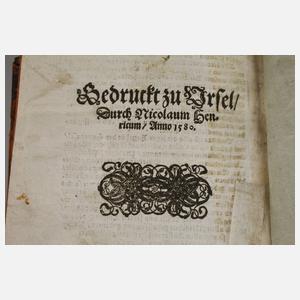 Gedruckt zu Vrsel/
Durch Nicolaum Hen-
ricum/ Anno 1580.